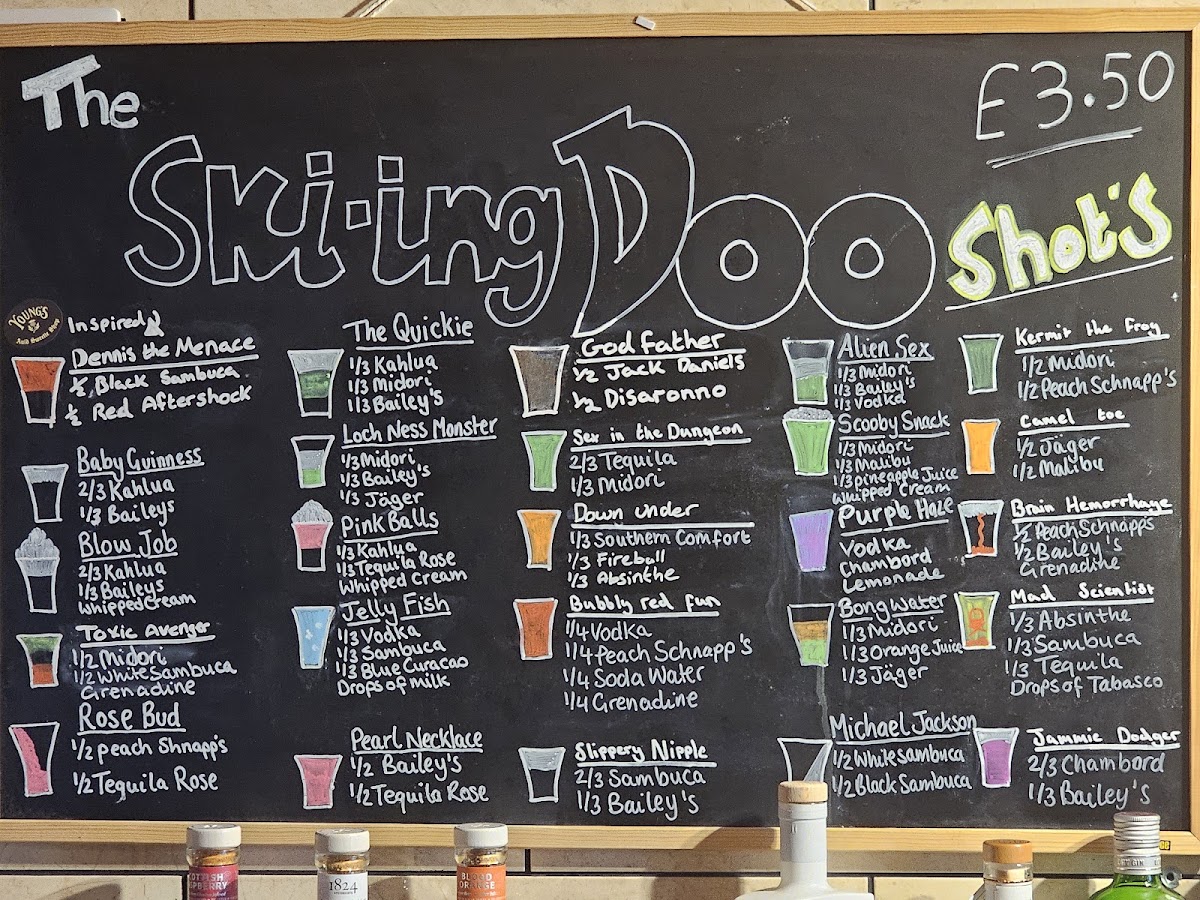 The
Ski-ing Doo
£3.50
Shot's
YOUNG'S
Inspired
Dennis the Menace
½ Black Sambuca
½ Red Aftershock
Baby Guinness
2/3 Kahlua
1/3 Baileys
Blow Job
2/3 Kahlua
1/3 Baileys
Whipped Cream
Toxic Avenger
1/2 Midori
1/2 White Sambuca
Grenadine
Rose Bud
1/2 peach Shnapp's
1/2 Tequila Rose
The Quickie
1/3 Kahlua
1/3 Midori
1/3 Bailey's
Loch Ness Monster
1/3 Midori
1/3 Bailey's
1/3 Jäger
Pink Balls
1/3 Kahlua
1/3 Tequila Rose
Whipped Cream
Jelly Fish
1/3 Vodka
1/3 Sambuca
1/3 Blue Curacao
Drops of milk
Pearl Necklace
1/2 Bailey's
1/2 Tequila Rose
God Father
1/2 Jack Daniels
1/2 Disaronno
Sex in the Dungeon
2/3 Tequila
1/3 Midori
Down under
1/3 Southern Comfort
1/3 Fireball
1/3 Absinthe
Bubbly red fun
1/4 Vodka
1/4 Peach Schnapp's
1/4 Soda Water
1/4 Grenadine
Slippery Nipple
2/3 Sambuca
1/3 Bailey's
Alien Sex
1/3 Midori
1/3 Bailey's
1/3 Vodka
Scooby Snack
1/3 Midori
1/3 Malibu
1/3 pineapple Juice
Whipped Cream
Purple Haze
Vodka
Chambord
Lemonade
Bong Water
1/3 Midori
1/3 Orange Juice
1/3 Jäger
Michael Jackson
1/2 White Sambuca
1/2 Black Sambuca
Kermit the Frog
1/2 Midori
1/2 Peach Schnapp's
Camel toe
1/2 Jäger
1/2 Malibu
Brain Hemorrhage
1/2 Peach Schnapps
1/2 Bailey's
Grenadine
Mad Scientist
1/3 Absinthe
1/3 Sambuca
1/3 Tequila
Drops of Tabasco
Jammie Dodger
2/3 Chambord
1/3 Bailey's
1824
BLOOD
ORANGE